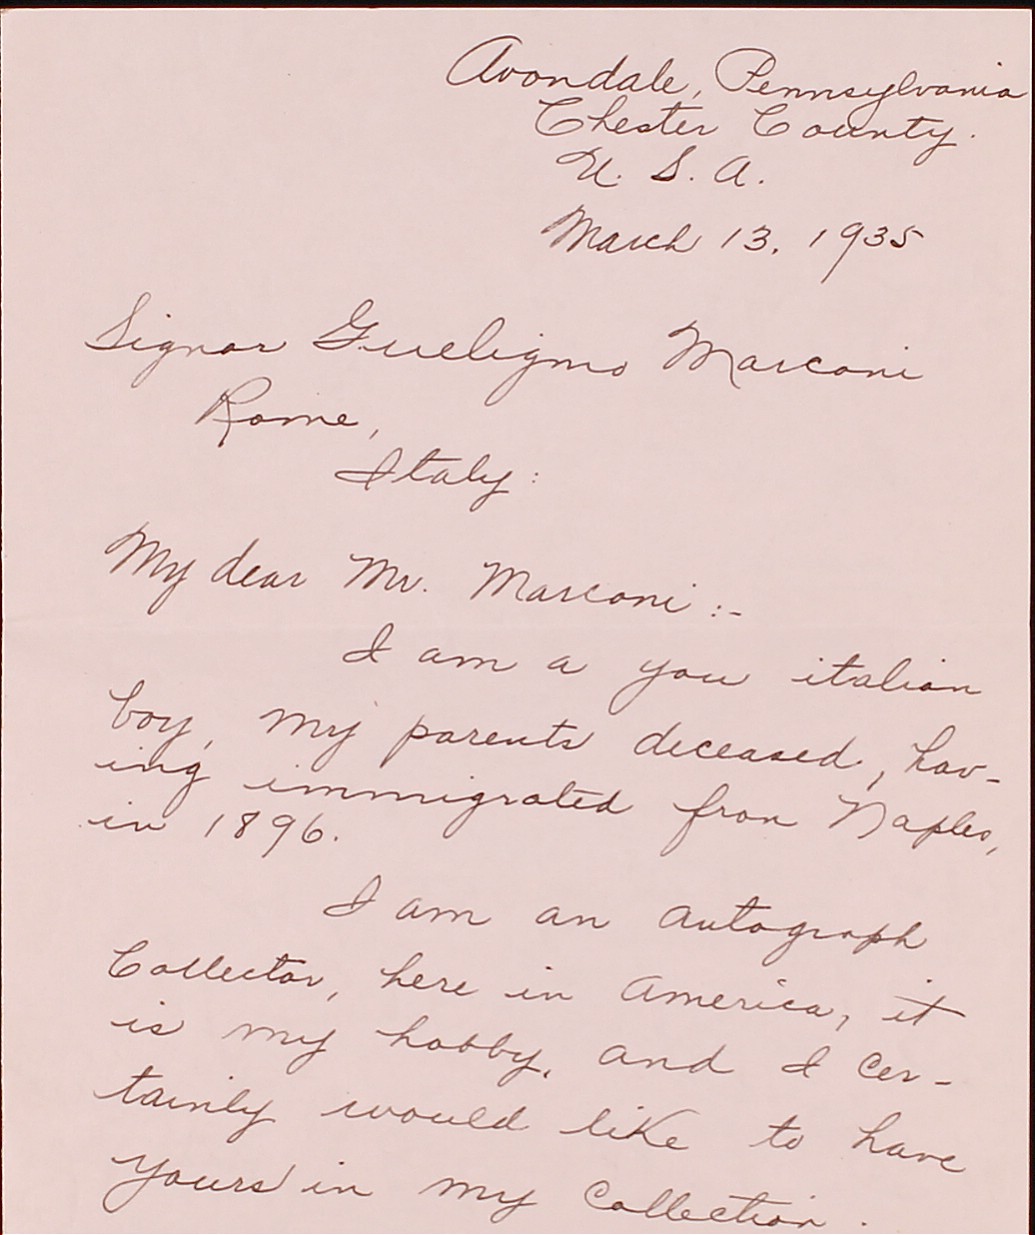 Avondale, Pennsylvania
Chester County.
U. S. A.
March 13, 1935
Signor Gueligmo Marconi
Rome,
Italy:
My dear Mr. Marconi :-
I am a you italian
boy, my parents deceased, hav-
ing immigrated fron Naples,
in 1896.
I am an autograph
Collector, here in America, it
is my hobby, and I cer-
tainly would like to have
yours in my collection.